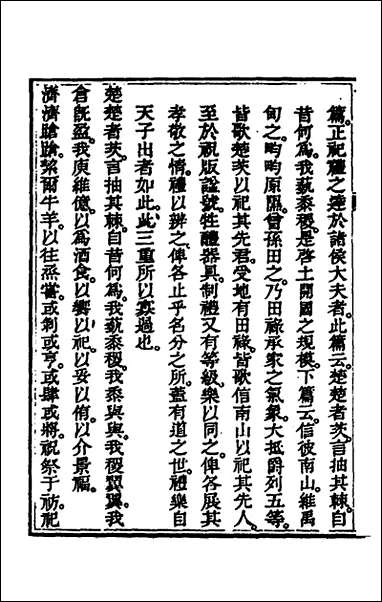 篇。正祀禮之達於諸侯大夫者。此篇云。楚楚者茨。言抽其棘。自
昔何爲。我蓺黍稷。是啓土開國之規模。下篇云。信彼南山。維禹
甸之。畇畇原隰。曾孫田之。乃田祿承家之氣象。大抵爵列五等。
皆歌楚茨以祀其先君。受地有田祿。皆歌信南山以祀其先人。
至於祝版諡號牲醴器具。制禮又有等級。樂以同之。俾各展其
孝敬之情。禮以辨之。俾各止乎名分之所。蓋有道之世。禮樂自
天子出者如此。此三重所以寡過也。
楚楚者茨。言抽其棘。自昔何爲。我蓺黍稷。我黍與與。我稷翼翼。我
倉旣盈。我庾維億。以爲酒食。以饗以祀。以妥以侑。以介景福。
濟濟蹌蹌。絜爾牛羊。以往烝嘗。或剝或亨。或肆或將。祝祭于祊。祀